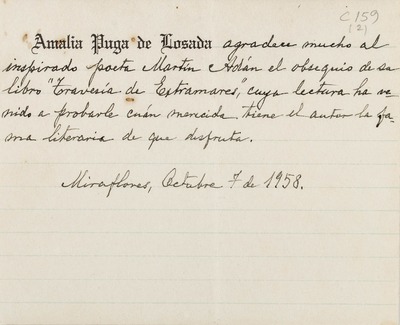 C 159
(2)
Amalia Puga de Losada agradece mucho al
inspirado poeta Martín Adán el obsequio de su
libro "Travesía de Extramares", cuya lectura ha ve-
nido a probarle cuán merecida tiene el autor la fa-
ma literaria de que disfruta.
Miraflores, Octubre 7 de 1958.